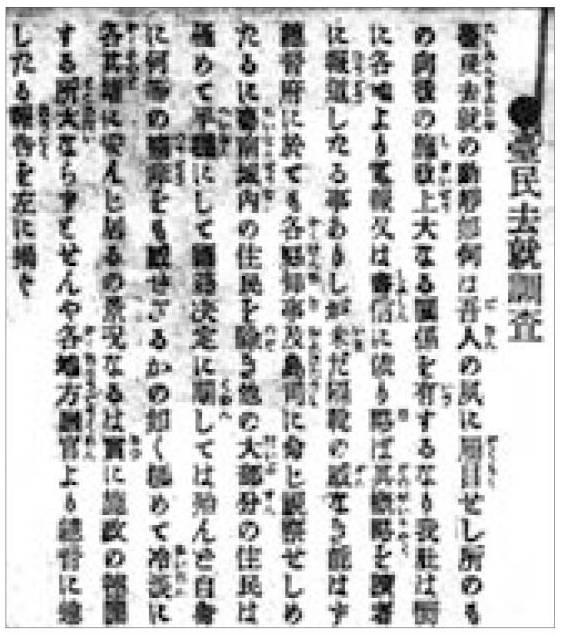 ●臺民去就調査
臺民去就の動靜如何は吾人の夙に刮目せし所のも
の向後の施政上大なる關係を有するなり我社は
に各地より電報又は書信に依り略ば其を讀者
に報道したる事ありしが未だ隔靴の感なき能はず
總督府に於ても各縣知事及島司に命じ視察せしめ
たるに臺南城内の住民を除き他の大部分の住民は
極めて平穩にして國籍决定に關しては殆んど自身
に何等の痛痒をも感せざるかの如く極めて冷淡に
各其堵に安んじ居るの景况なるは實に施政の
する所大ならずとせんや各地方官より總督に
したる報告を左に掲ぐ